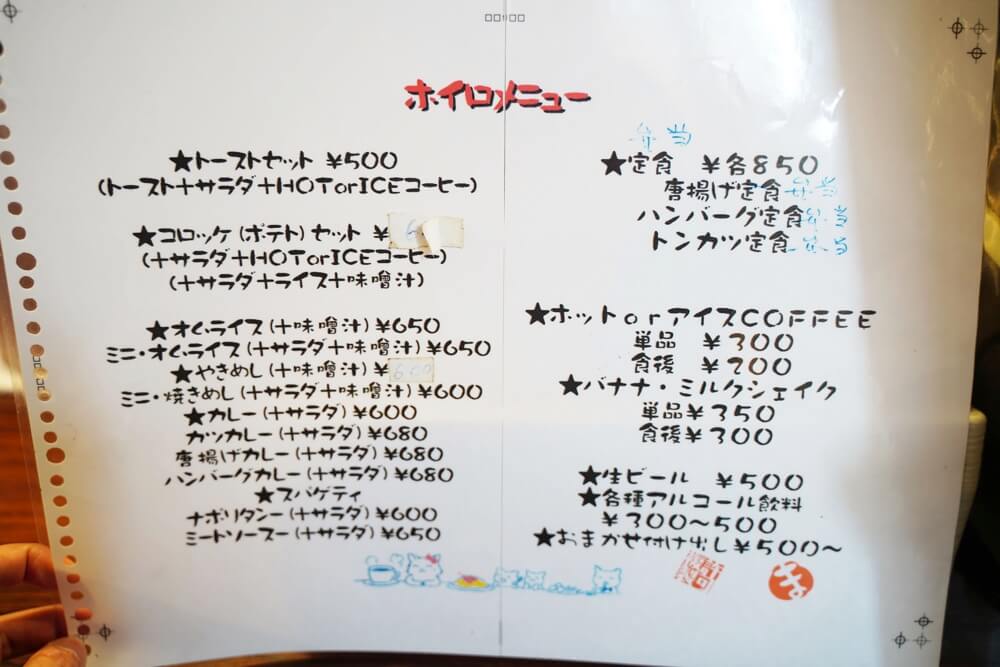 ホイロメニュー
★トーストセット ¥500
(トースト+サラダ+HOTorICEコーヒー)
★コロッケ(ポテト)セット ¥
(+サラダ+HOTorICEコーヒー)
(+サラダ+ライス+味噌汁)
★オムライス(+味噌汁)¥650
ミニ・オムライス(+サラダ+味噌汁)¥650
★やきめし(+味噌汁)¥600
ミニ・焼きめし(+サラダ+味噌汁)¥600
★カレー(+サラダ)¥600
カツカレー(+サラダ)¥680
唐揚げカレー(+サラダ)¥680
ハンバーグカレー(+サラダ)¥680
★スパゲティ
ナポリタンー(+サラダ)¥600
ミートソースー(+サラダ)¥650
弁当
★定食 ¥各850
唐揚げ定食弁当
ハンバーグ定食弁当
トンカツ定食弁当
★ホットorアイスCOFFEE
単品 ¥300
食後 ¥200
★バナナ・ミルクシェイク
単品¥350
食後¥300
★生ビール ¥500
★各種アルコール飲料
¥300~500
★おまかせ付け出し¥500~